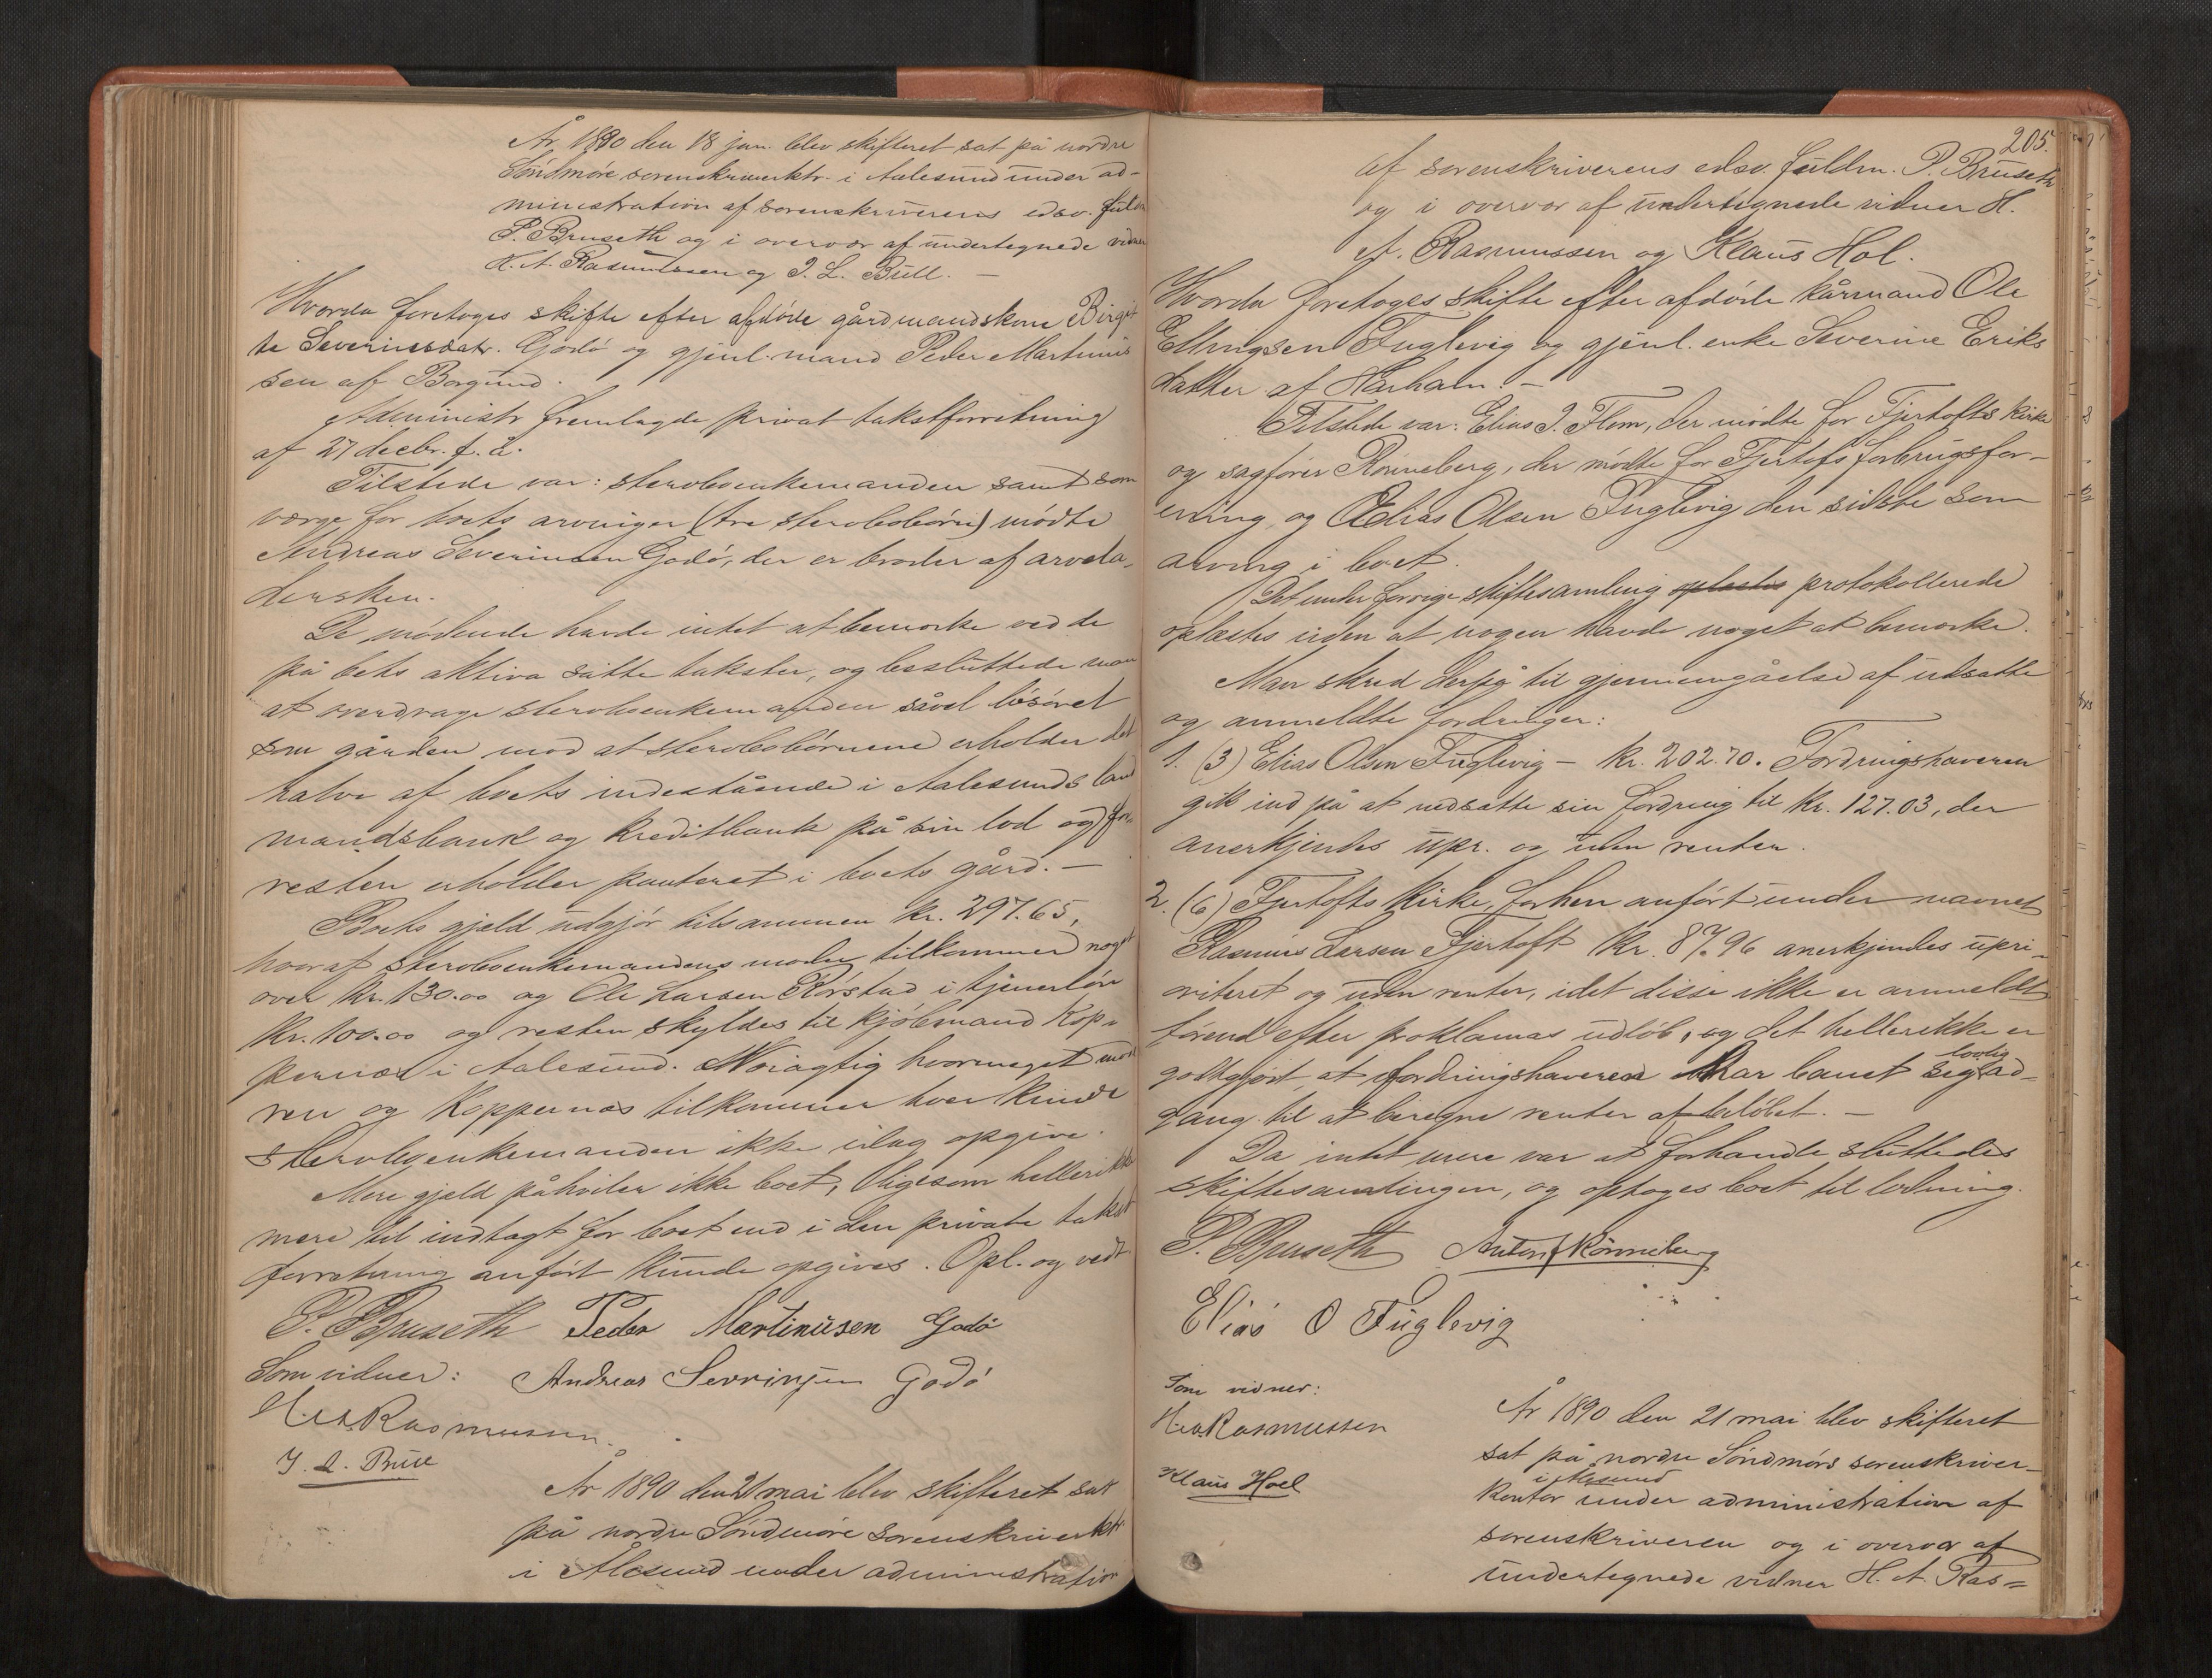 År 1890 den 18 jan. blev skifteret sat på nordre
Søndmøre sorenskriverktr. i Aalesund under ad-
ministration af sorenskriverens edsv. fuldm
P. Bruseth og i overvær af undertegnede vidner
H. A. Rasmussen og J. L. Bull. —
Hvorda foretoges skifte efter afdøde gårdmandskone Birgit
te Severinsdatr. Godø og gjenl. mand Peder Martinus
sen af Borgund.
Administr fremlagde privat takstforretning
af 27 decbr. f. å.
Tilstede var: sterboenkemanden samt som
værge for boets arvinger (tre sterbobørn) mødte
Andreas Severinsen Godø, der er broder af arvela-
dersken.
De mødende havde intet at bemærke ved de
på bets aktiva satte takster, og besluttede man
at overdrage sterboenkemanden såvel løsøret
som gården mod at sterbobørnene erholder det
halve af boets indestående i Aalesunds land
mandsbank og Kreditbank på sin lod og for
resten erholder panteret i boets gård. —
Boets gjæld udgjør tilsammen kr. 297.65,
hvoraf sterboenkemandens moder tilkommer noget
over kr. 130.00 og Ole Larsen Rørstad i tjenerløn
kr. 100.00 og resten skyldes til kjøbmand Kop-
pernæs i Aalesund. Nøiagtig hvormeget mod
ren og Koppernæs tilkommer hver kunde
sterboenkemanden ikke idag opgive.
Mere gjæld påhviler ikke boet, ligesom hellerikke
mere til indtægt for boet end i den private takst
forretning anført kunde opgives. Opl. og vedt.
P. Bruseth Peder Martinusen Godø
Som vidner: Andreas Sevrinsen Godø
H.A.Rasmussen.
J. L. Bull
År 1890 den 21 mai blev skifteret sat
på nordre Søndmøre sorenskriverktr
i Ålesund under administration
205.
af sorenskriverens edsv. fuldm. P. Bruseth
og i overvær af undertegnede vidner H.
A. Rasmussen og Klaus Hol.
Hvorda foretoges skifte efter afdøde kårmand Ole
Ellingsen Fuglevig og gjenl. enke Severine Eriks
datter af Harham. —
Tilstede var: Elias J. Flem, der mødte for Fjertofts kirke
og sagfører Rønneberg, der mødte for Fjertofs forbrugsfor-
ening og Elias Olsen Fuglevig den sidste som
arving i boet.
Det under forrige skiftesamling oplæstes protokollerede
oplæstes uden at nogen havde noget at bemærke.
Man skred derpå til gjennemgåelse af udsatte
og anmeldte fordringer:
1. (3) Elias Olsen Fuglevig — kr. 202.70. Fordringshaveren
gik ind på at nedsætte sin fordring til kr. 127.03, der
anerkjendes upr. og uden renter.
2. (6) Fjertofts kirke, forhen anført under navnet
Rasmus Larsen Fjertoft kr. 87.96 anerkjendes upri-
oriteret og uden renter, idet disse ikke er anmeldt
førend efter proklamas udløb, og det hellerikke er
godtgjort, at fordringshaveren har banet sig lovlig ad-
gang til at beregne renter af beløbet. —
Da intet mere var at forhandle sluttedes
skiftesamlingen, og optoges boet til lodning.
P. Bruseth Anton Rønneberg
Elias O Fuglevig
Som vidner:
H.A.Rasmussen
Klaus Hoel
År 1890 den 21 mai blev skifteret
sat på nordre Søndmørs sorenskriver-
kontor i Ålesund under administration af
sorenskriveren og i overvær af
undertegnede vidner H. A. Ras=